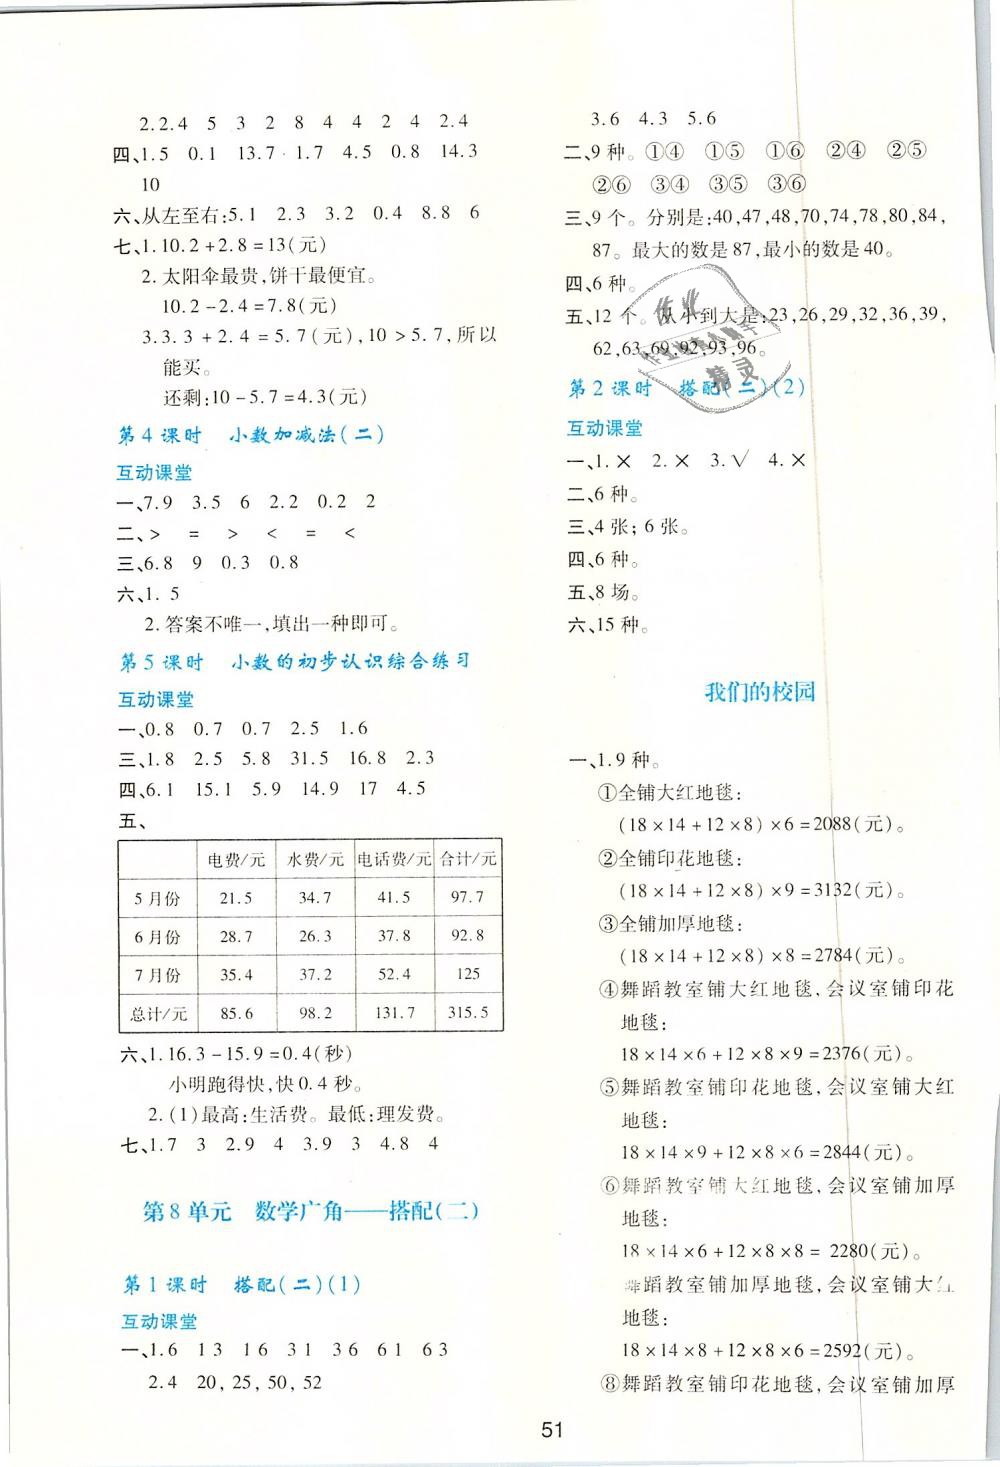 2.2.4 5 3 2 8 4 4 2 4 2.4
四、1.5 0.1 13.7 1.7 4.5 0.8 14.3
10
六、从左至右:5.1 2.3 3.2 0.4 8.8 6
七、1.10.2+2.8=13(元)
2.太阳伞最贵,饼干最便宜。
10.2-2.4=7.8(元)
3.3.3+2.4=5.7(元),10>5.7,所以
能买。
还剩:10-5.7=4.3(元)
第4课时 小数加减法(二)
互动课堂
一、7.9 3.5 6 2.2 0.2 2
二、> = > < = <
三、6.8 9 0.3 0.8
六、1. 5
2.答案不唯一,填出一种即可。
第5课时 小数的初步认识综合练习
互动课堂
一、0.8 0.7 0.7 2.5 1.6
三、1.8 2.5 5.8 31.5 16.8 2.3
四、6.1 15.1 5.9 14.9 17 4.5
五、
电费/元 水费/元 电话费/元 合计/元
5月份 21.5 34.7 41.5 97.7
6月份 28.7 26.3 37.8 92.8
7月份 35.4 37.2 52.4 125
总计/元 85.6 98.2 131.7 315.5
六、1.16.3-15.9=0.4(秒)
小明跑得快,快0.4秒。
2.(1)最高:生活费。最低:理发费。
七、1.7 3 2.9 4 3.9 3 4.8 4
第8单元 数学广角——搭配(二)
第1课时 搭配(二)(1)
互动课堂
一、1.6 13 16 31 36 61 63
2.4 20,25,50,52
3.6 4.3 5.6
二、9种。①④ ①⑤ ①⑥ ②④ ②⑤
②⑥ ③④ ③⑤ ③⑥
三、9个。分别是:40,47,48,70,74,78,80,84,
87。最大的数是87,最小的数是40。
四、6种。
五、12个。从小到大是:23,26,29,32,36,39,
62,63,69,92,93,96。
作业
精灵
第2课时 搭配(二)(2)
互动课堂
一、1.× 2.× 3.√ 4.×
二、6种。
三、4张;6张。
四、6种。
五、8场。
六、15种。
我们的校园
一、1.9种。
①全铺大红地毯:
(18×14+12×8)×6=2088(元)。
②全铺印花地毯:
(18×14+12×8)×9=3132(元)。
③全铺加厚地毯:
(18×14+12×8)×8=2784(元)。
④舞蹈教室铺大红地毯,会议室铺印花
地毯:
18×14×6+12×8×9=2376(元)。
⑤舞蹈教室铺印花地毯,会议室铺大红
地毯:
18×14×9+12×8×6=2844(元)。
⑥舞蹈教室铺大红地毯,会议室铺加厚
地毯:
18×14×6+12×8×8= 2280(元)。
舞蹈教室铺加厚地毯,会议室铺大红
地毯:
18×14×8+12×8×6=2592(元)。
⑧舞蹈教室铺印花地毯,会议室铺加厚
51